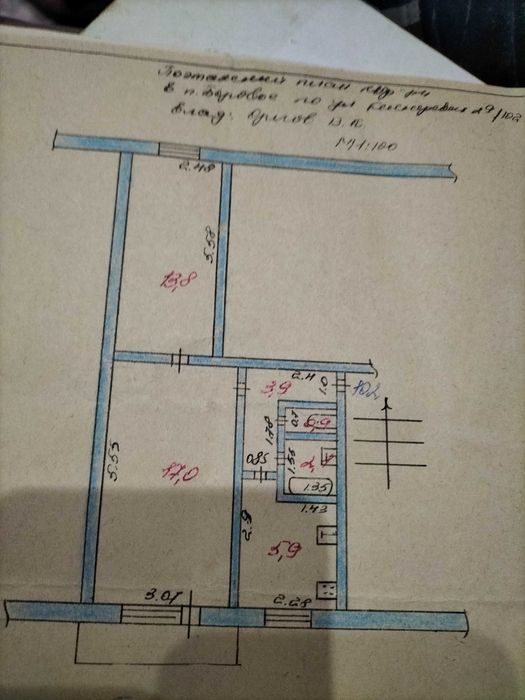 Поэтажный план кв-ры
в п. Боровое по ул
влад: В. К.
М 1:100
2.48
5.58
13,8
2.4
3,9
1.0
102
0.7
0,9
1.78
5.55
17,0
0.85
1.55
2,8
1.35
1.43
2.9
5,9
3.07
2.28